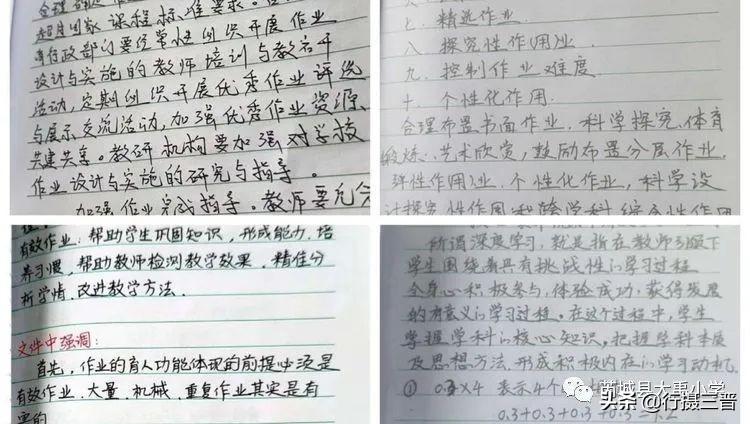 超周国家课程标准要求。
育行政部门要经常性组织开展作业
设计与实施的教师培训与教研
活动,定期组织开展优秀作业评选
与展示交流活动,加强优秀作业资源
共建共享。教研机构要加强对学校
作业设计与实施的研究与指导。
加强作业完成指导。教师要充分
七、精选作业
八、探究性作用业
九、控制作业难度
十、个性化作用
合理布置书面作业、科学探究、体育
锻炼、艺术欣赏,鼓励布置分层作业、
弹性作用业、个性化作业,科学设
计探究性作用和跨学科综合性作用
有效作业:帮助学生巩固知识,形成能力,培
养习惯,帮助教师检测教学效果,精准分
析学情,改进教学方法.
文件中强调:
首先,作业的育人功能体现的前提必须是
有效作业,大量、机械、重复作业其实是有
害的
所谓深度学习,就是指在教师引领下
学生围绕着具有挑战性的学习过程
全身心积极参与,体验成功,获得发展
的有意义的学习过程。在这个过程中,学生
掌握学科的核心知识,把握学科本质
及思想方法,形成积极内在的学习动机,
① 0.3×4 表示4个
0.3+0.3+0.3+0.3=1.2
芮城县大禹小学
头条@行摄三晋